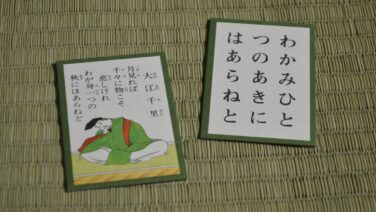 大江千里
月見れば
千々に物こそ
悲しけれ
わが身一つの
秋にはあらねど
わかみひと
つのあきに
はあらねと